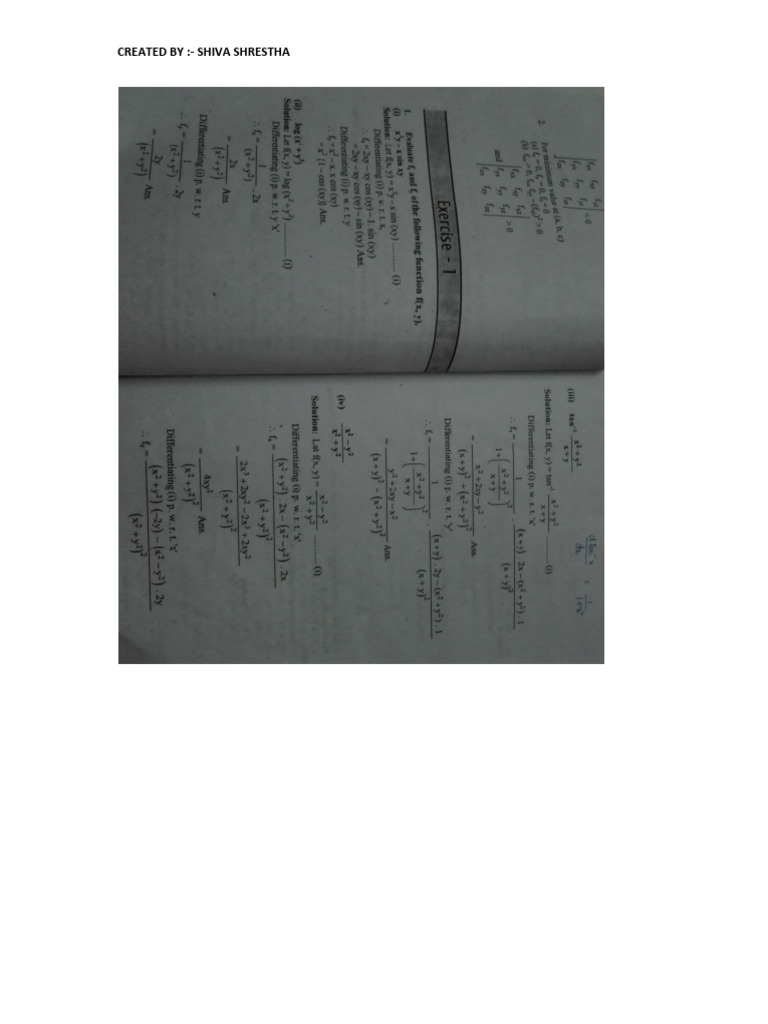 CREATED BY :- SHIVA SHRESTHA
| fxx fxy fxz |
| fyx fyy fyz | < 0
| fzx fzy fzz |
2. For minimum value at (a, b, c)
(a) fx = 0, fy = 0, fz = 0
(b) fxx > 0, fxx fyy − (fxy)² > 0
and | fxx fxy fxz |
| fyx fyy fyz | > 0
| fzx fzy fzz |
Exercise - 1
1. Evaluate fx and fy of the following function f(x, y).
(i) x²y − x sin xy
Solution: Let f(x, y) = x²y − x sin (xy) ........... (i)
Differentiating (i) p. w. r. t. x,
∴ fx = 2xy − xy cos (xy) − 1. sin (xy)
= 2xy − xy cos (xy) − sin (xy) Ans.
Differentiating (i) p. w. r. t. y
∴ fy = x² − x. x cos (xy)
= x² [1 − cos (xy)] Ans.
(ii) log (x² + y²)
Solution: Let f(x, y) = log (x² + y²) ............ (i)
Differentiating (i) p. w. r. t. y 'x'
∴ fx = 1/(x² + y²) . 2x
= 2x/(x² + y²) Ans.
Differentiating (i) p. w. r. t. y
∴ fy = 1/(x² + y²) . 2y
= 2y/(x² + y²) Ans.
(iii) tan⁻¹ (x² + y²)/(x + y)
Solution: Let f(x, y) = tan⁻¹ (x² + y²)/(x + y) ......... (i)
Differentiating (i) p. w. r. t. 'x'
∴ fx = 1/(1 + ((x² + y²)/(x + y))²) . ((x + y) . 2x − (x² + y²) . 1)/(x + y)²
= (x² + 2xy − y²)/((x + y)² + (x² + y²)²) Ans.
Differentiating (i) p. w. r. t. 'y'
∴ fy = 1/(1 + ((x² + y²)/(x + y))²) . ((x + y) . 2y − (x² + y²) . 1)/(x + y)²
= (y² + 2xy − x²)/((x + y)² − (x² + y²)²) Ans.
(iv) (x² − y²)/(x² + y²)
Solution: Lat f(x, y) = (x² − y²)/(x² + y²) ......... (i)
Differentiating (i) p. w. r. t. 'x'
∴ fx = ((x² + y²) . 2x − (x² − y²) . 2x)/(x² + y²)²
= (2x³ + 2xy² − 2x³ + 2xy²)/(x² + y²)²
= 4xy²/(x² + y²)² Ans.
Differentiating (i) p. w. r. t. 'x'
∴ fy = ((x² + y²) (−2y) − (x² − y²) . 2y)/(x² + y²)²